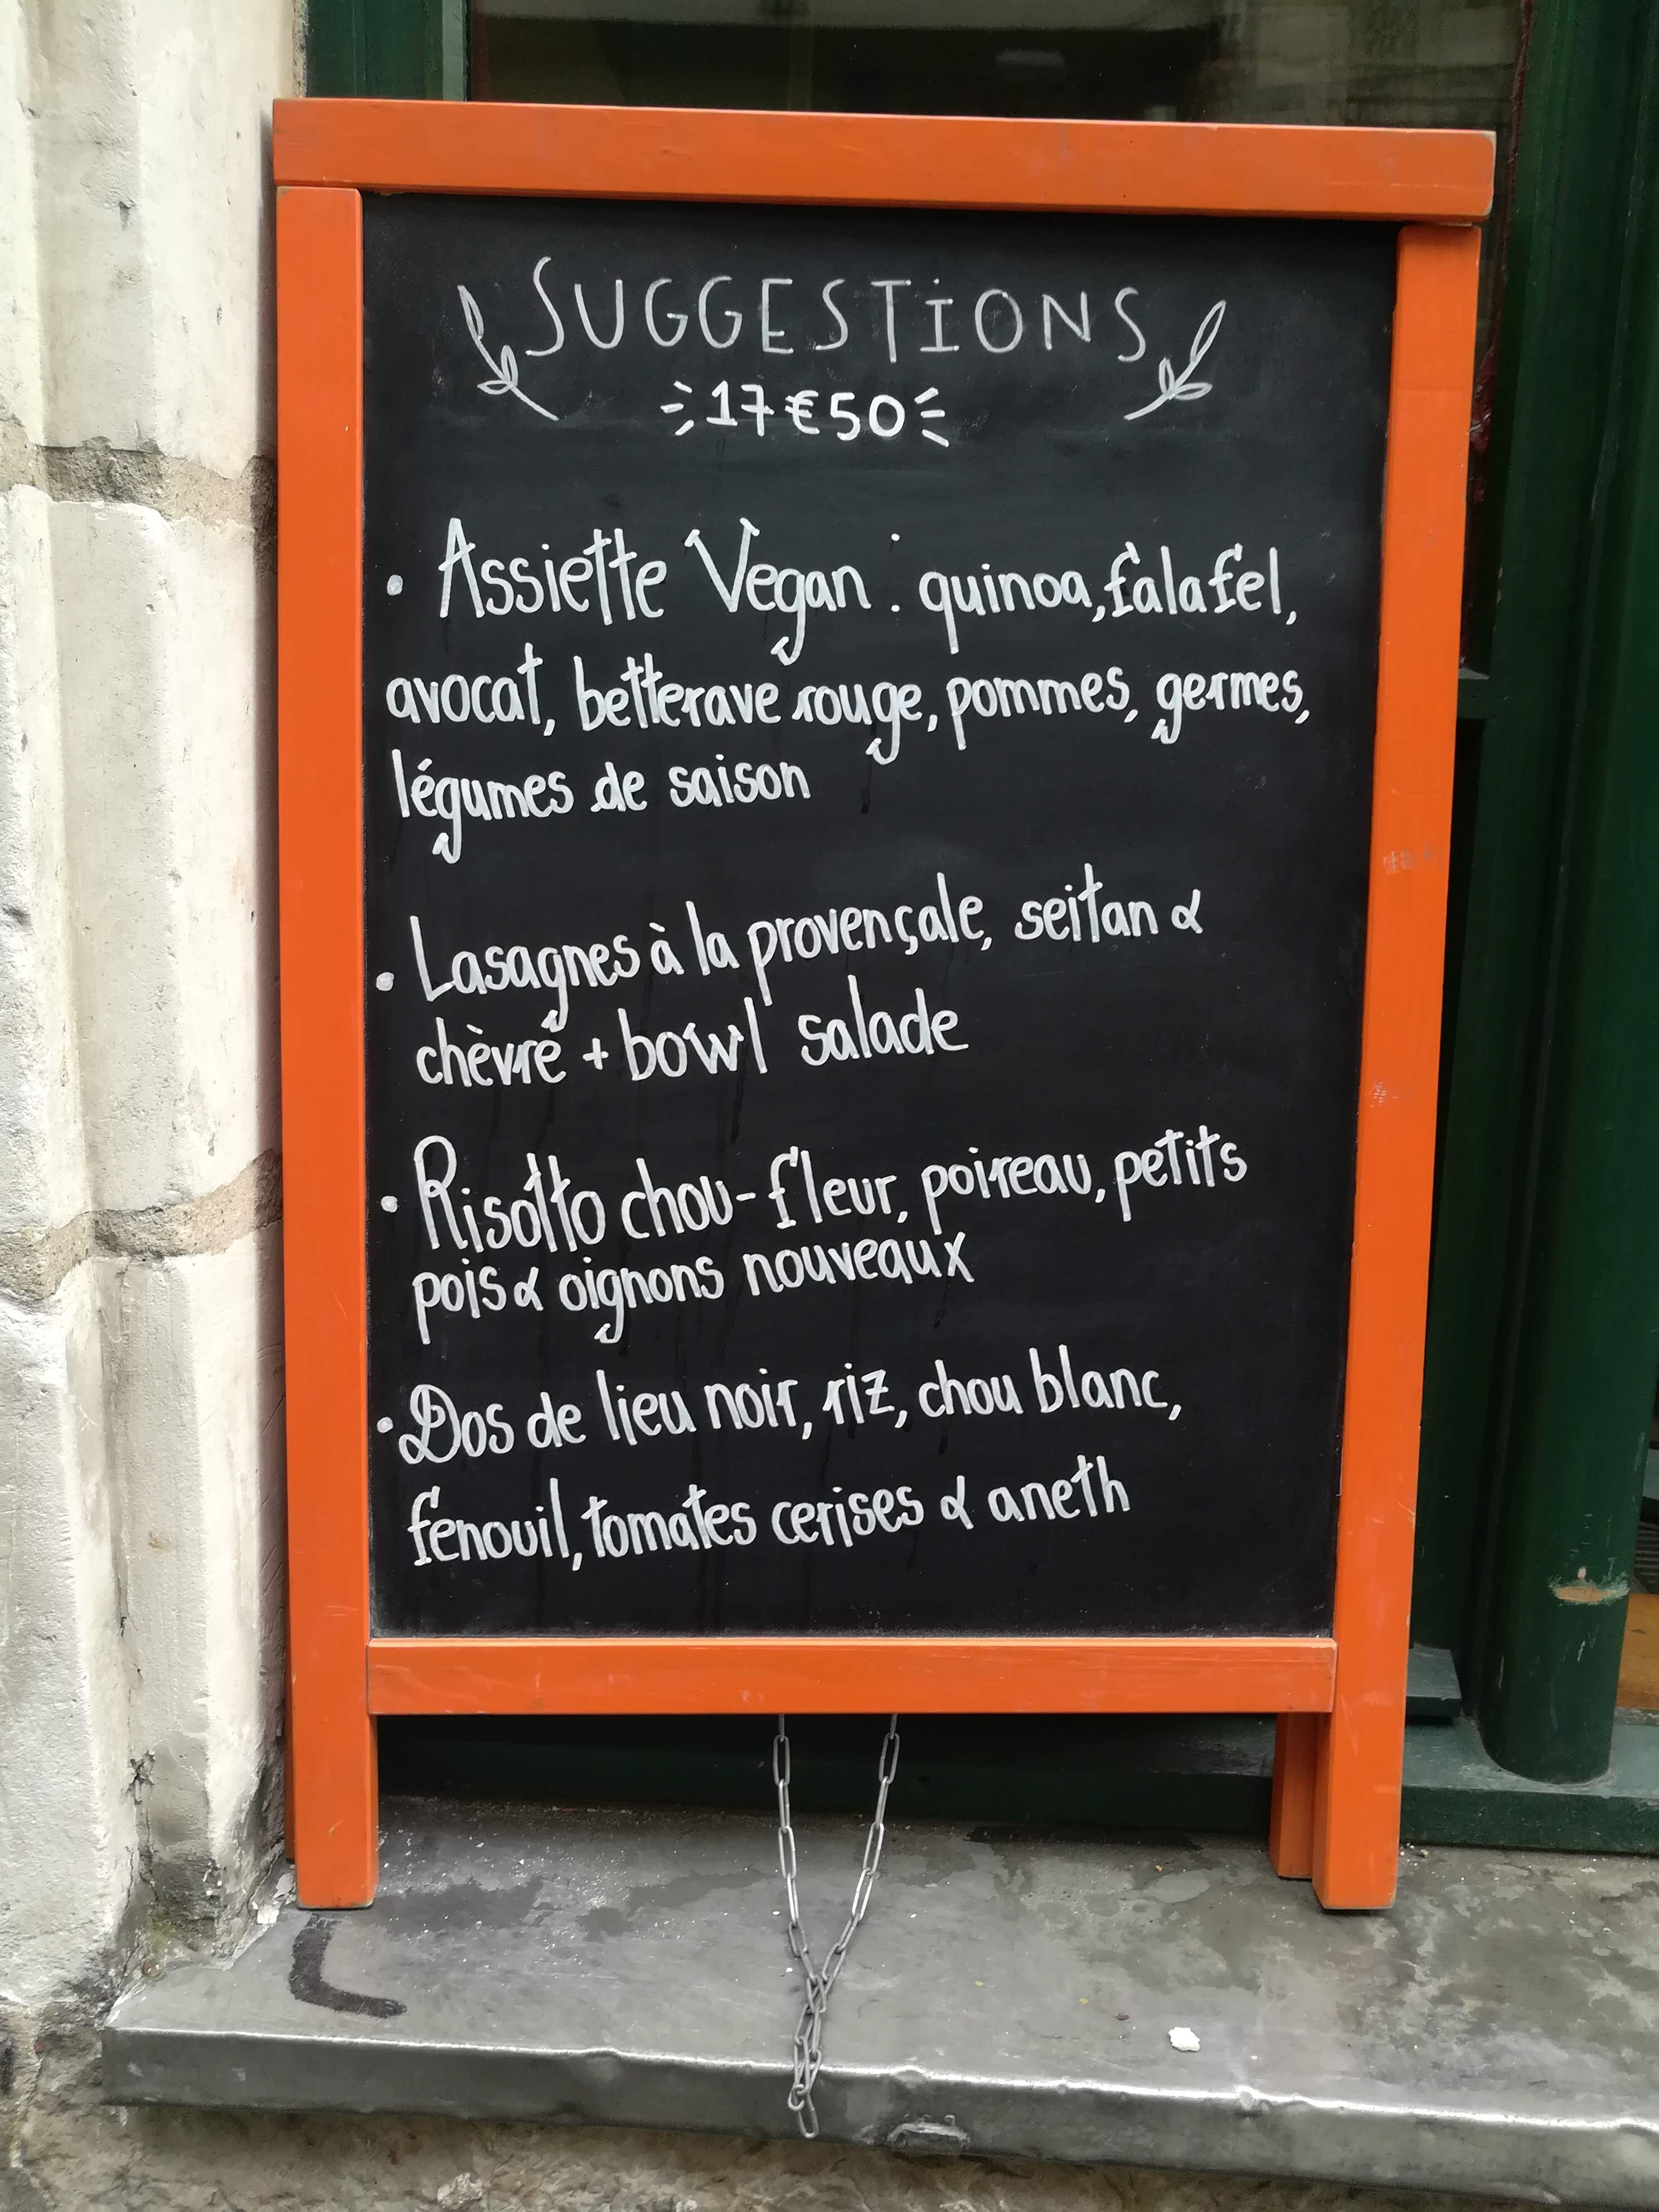 SUGGESTIONS
17€50
• Assiette Vegan : quinoa, falafel,
avocat, betterave rouge, pommes, germes,
légumes de saison
• Lasagnes à la provençale, seitan &
chèvre + bowl salade
• Risotto chou-fleur, poireau, petits
pois & oignons nouveaux
• Dos de lieu noir, riz, chou blanc,
fenouil, tomates cerises & aneth